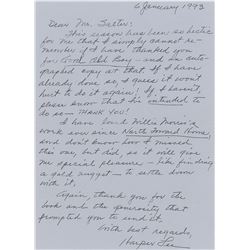 6 January 1993
Dear Mr.
This season has been so hectic
for me that I simply cannot re-
member if I have thanked you
for Good Old Boy — and an auto-
graphed copy at that! If I have
already done so, I guess it won't
hurt to do it again! If I haven't,
please know that I intended to
do so — THANK YOU!
I have loved Willie Morris's
work ever since North Toward Home
and don't know how I missed
this one, but did, so it will give
me special pleasure — like finding
a gold nugget — to settle down
with it.
Again, thank you for the
book and the generosity that
prompted you to send it.
With best regards,
Harper Lee